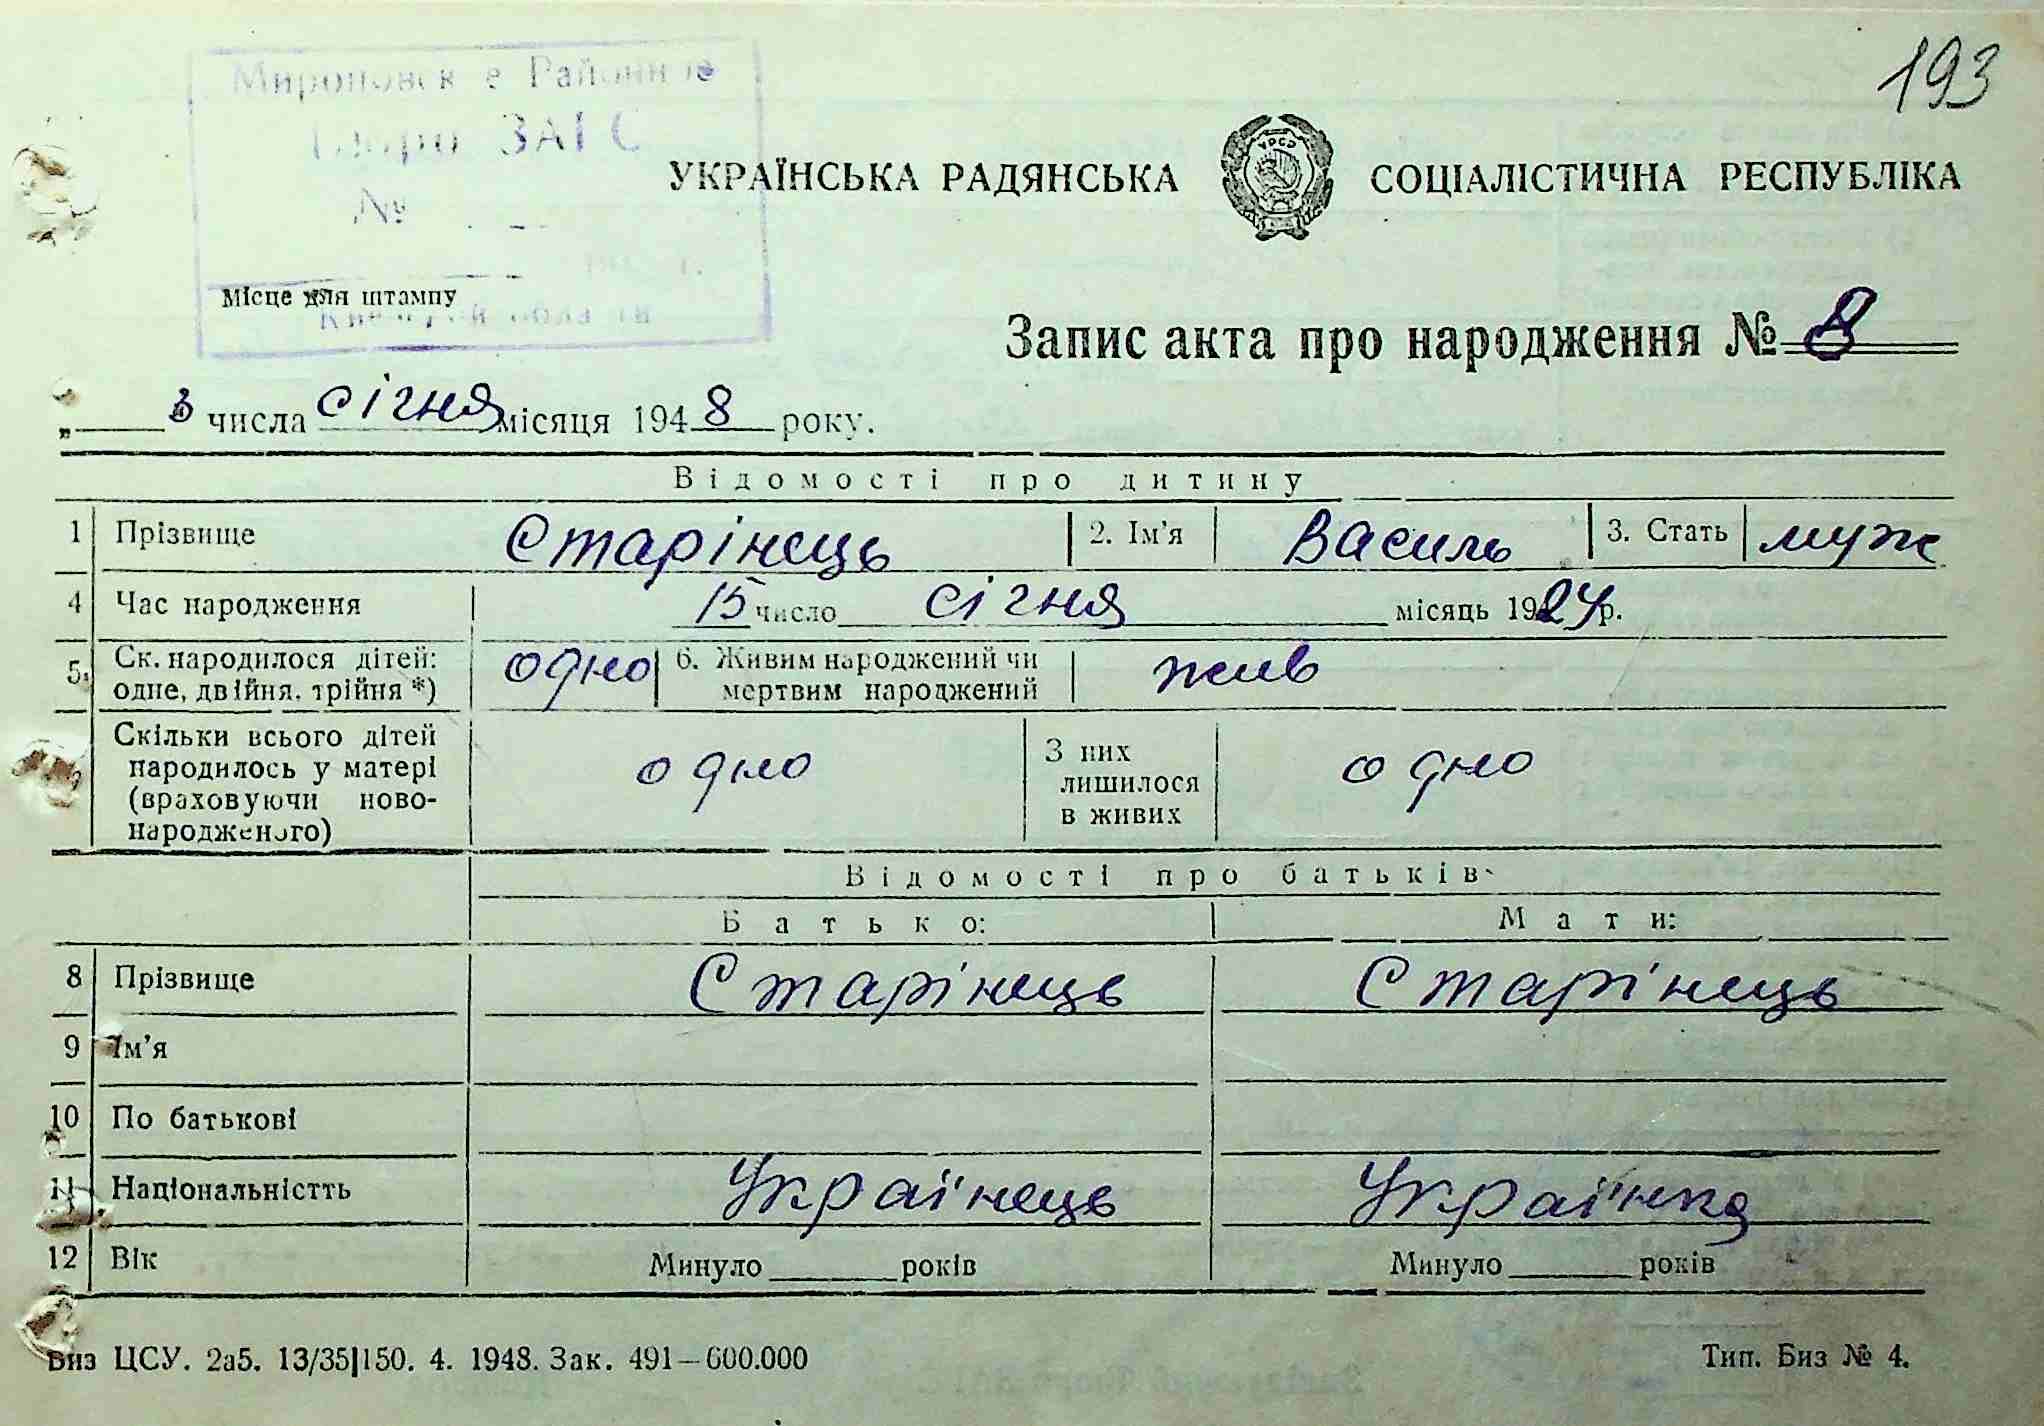 193
Мироновское Районное
Бюро ЗАГС
№
Місце для штампу
УКРАЇНСЬКА РАДЯНСЬКА СОЦІАЛІСТИЧНА РЕСПУБЛІКА
УРСР
Запис акта про народження № 8
„ 3 числа січня місяця 1948 року.
Відомості про дитину
1 Прізвище Старінець 2. Ім'я Василь 3. Стать муж
4 Час народження 15 число січня місяць 1924 р.
5. Ск. народилося дітей: одне, двійня, трійня *) одно 6. Живим народжений чи мертвим народжений жив
Скільки всього дітей народилось у матері (враховуючи новонародженого) одно З них лишилося в живих одно
Відомості про батьків
Батько: Мати:
8 Прізвище Старінець Старінець
9 Ім'я
10 По батькові
11 Національністть Українець Українка
12 Вік Минуло ____ років Минуло ____ років
Виз ЦСУ. 2а5. 13/35|150. 4. 1948. Зак. 491—600.000 Тип. Виз № 4.